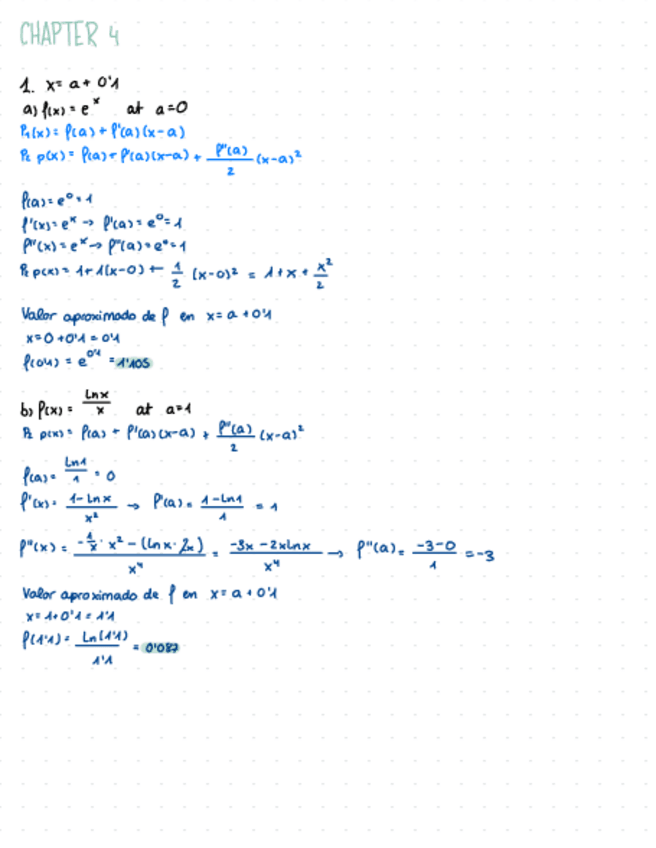 CHAPTER 4
1. x = a + 0'1
a) f(x) = e^x at a=0
P₁(x) = f(a) + f'(a)(x-a)
P₂ p(x) = f(a) + f'(a)(x-a) + f''(a)/2 (x-a)²
f(a) = e⁰ = 1
f'(x) = e^x → f'(a) = e⁰ = 1
f''(x) = e^x → f''(a) = e⁰ = 1
P₂ p(x) = 1 + 1(x-0) + 1/2 (x-0)² = 1 + x + x²/2
Valor aproximado de f en x = a + 0'1
x = 0 + 0'1 = 0'1
f(0'1) = e^0'1 = 1'105
b) f(x) = Ln x / x at a=1
P₂ p(x) = f(a) + f'(a)(x-a) + f''(a)/2 (x-a)²
f(a) = Ln 1 / 1 = 0
f'(x) = 1 - Ln x / x² → f'(a) = 1 - Ln 1 / 1 = 1
f''(x) = -1/x · x² - (Ln x · 2x) / x⁴ = -3x - 2x Ln x / x⁴ → f''(a) = -3-0 / 1 = -3
Valor aproximado de f en x = a + 0'1
x = 1 + 0'1 = 1'1
f(1'1) = Ln(1'1) / 1'1 = 0'087